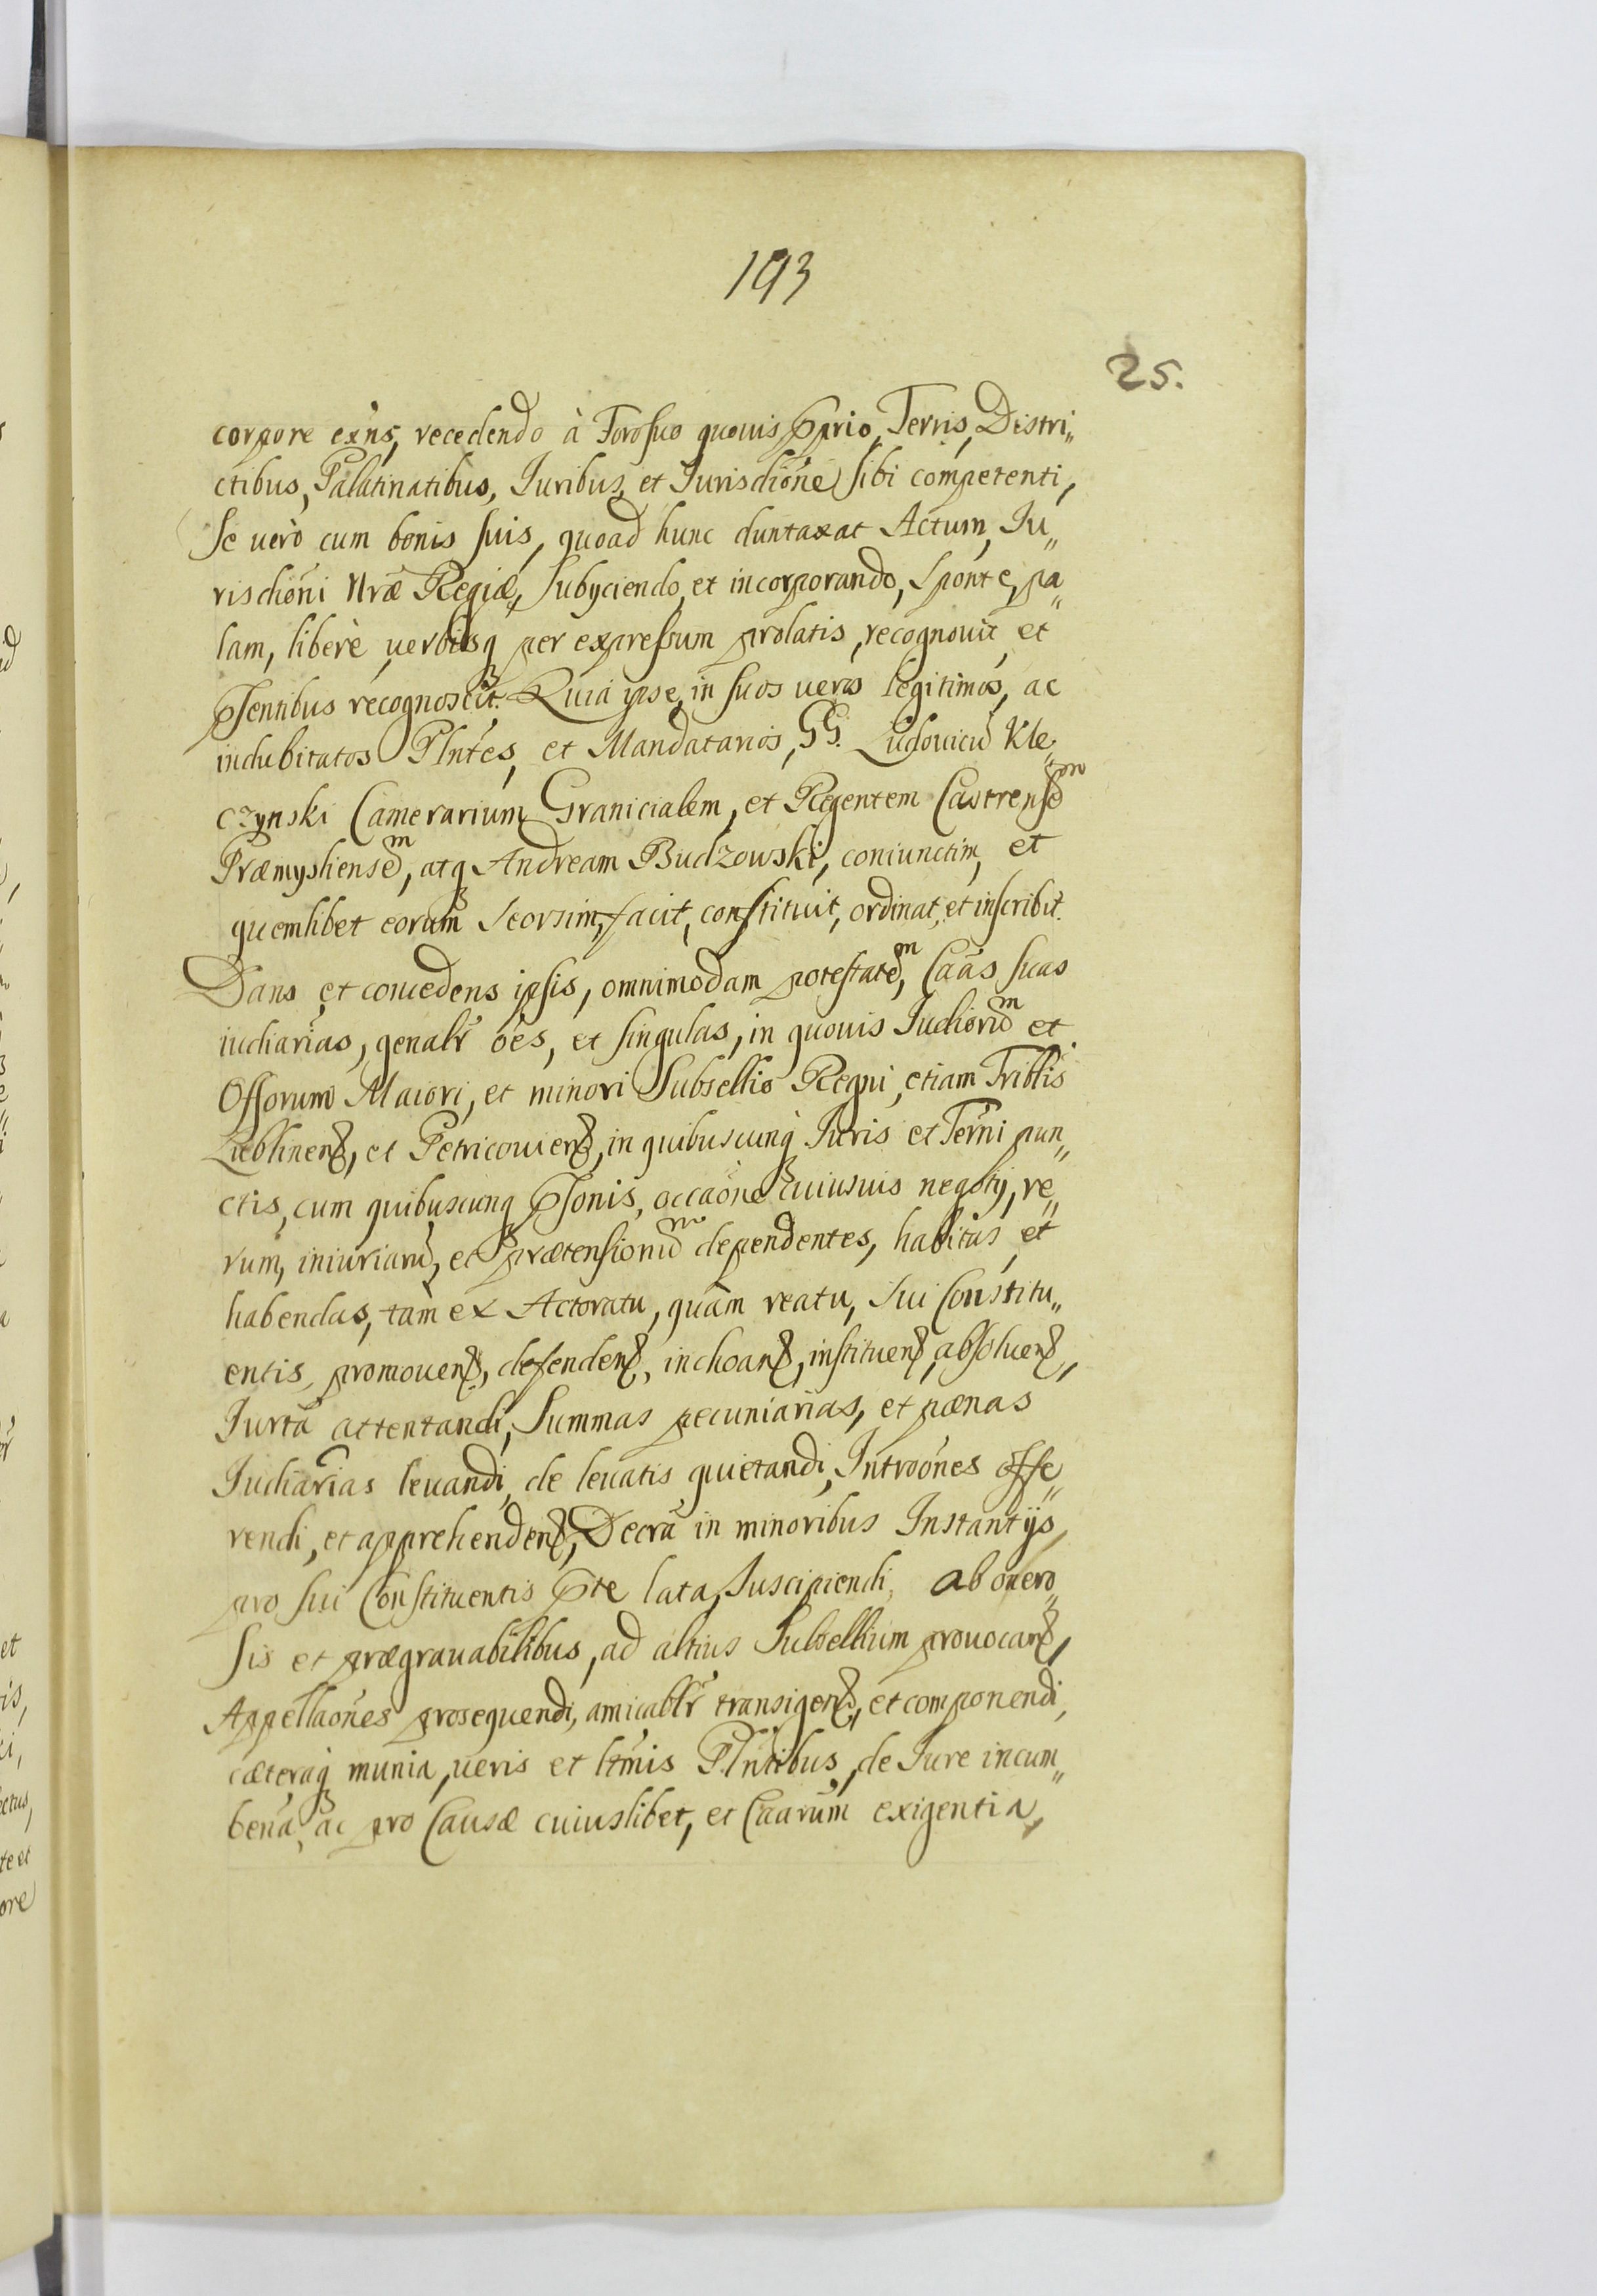 193
25.
corpore exñs, recedendo à Foro suo quovis ꝓprio, Terris, Distri„
ctibus, Palatinatibus, Iuribus, et Iurisdiõne sibi competenti,
Se verò cum bonis suis, quoad hunc duntaxat Actum, Iu„
risdiõni Nræ Regiæ, subyciendo, et incorporando, Sponte, pa„
lam, liberè, verbisq́ꝫ per expressum prolatis, recognovit, et
ꝓsentibus recognoscit. Quia ipse, in suos veros legitimos, ac
indubitatos Plñtes, et Mandatarios, GG. Ludovicū Kle„
czynski Camerarium Granicialem, et Regentem Castrensēm
Præmysliensēm, atqꝫ Andream Budzowski, coniunctim, et
quemlibet eorum seorsim, facit, constituit, ordinat, et inscribit.
Dans et concedens ipsis, omnimodam potestatēm, Cãas suas
iudiarias, genalr̃ oẽs, et singulas, in quovis Iudiorūm et
Offorum Maiori, et minori Subsellio Regni, etiam Tribłis
Lublineñ, et Petricovieñ, in quibuscunqꝫ Iuris et Term̃i pun„
ctis, cum quibuscunqꝫ ꝑsonis, occaõne cuiusvis negotij, re„
rum, iniuriarū, et prætensionūm dependentes, habitas, et
habendas, tàm ex Actoratu, quàm reatu, sui Constitu„
entis, promoveñ, defendeñ, inchoañ, institueñ, absolveñ,
Iurta attentandi, Summas pecuniarias, et pænas
Iudiarias levandi, de levatis quietandi, Introõnes offe„
rendi, et apprehendeñ, Decrã in minoribus Instantijs,
pro sui Constituentis ꝑte lata, suscipiendi, ab onero„
sis et prægravabilibus, ad altius Subsellium provocañ,
Appellaõnes prosequendi, amicablr̃ transigeñ, et componendi,
cæteraqꝫ munia, veris et ltm̃is Plñtibus, de Iure incum„
beñã, ac pro Causæ cuiuslibet, et Cãarum exigentia,